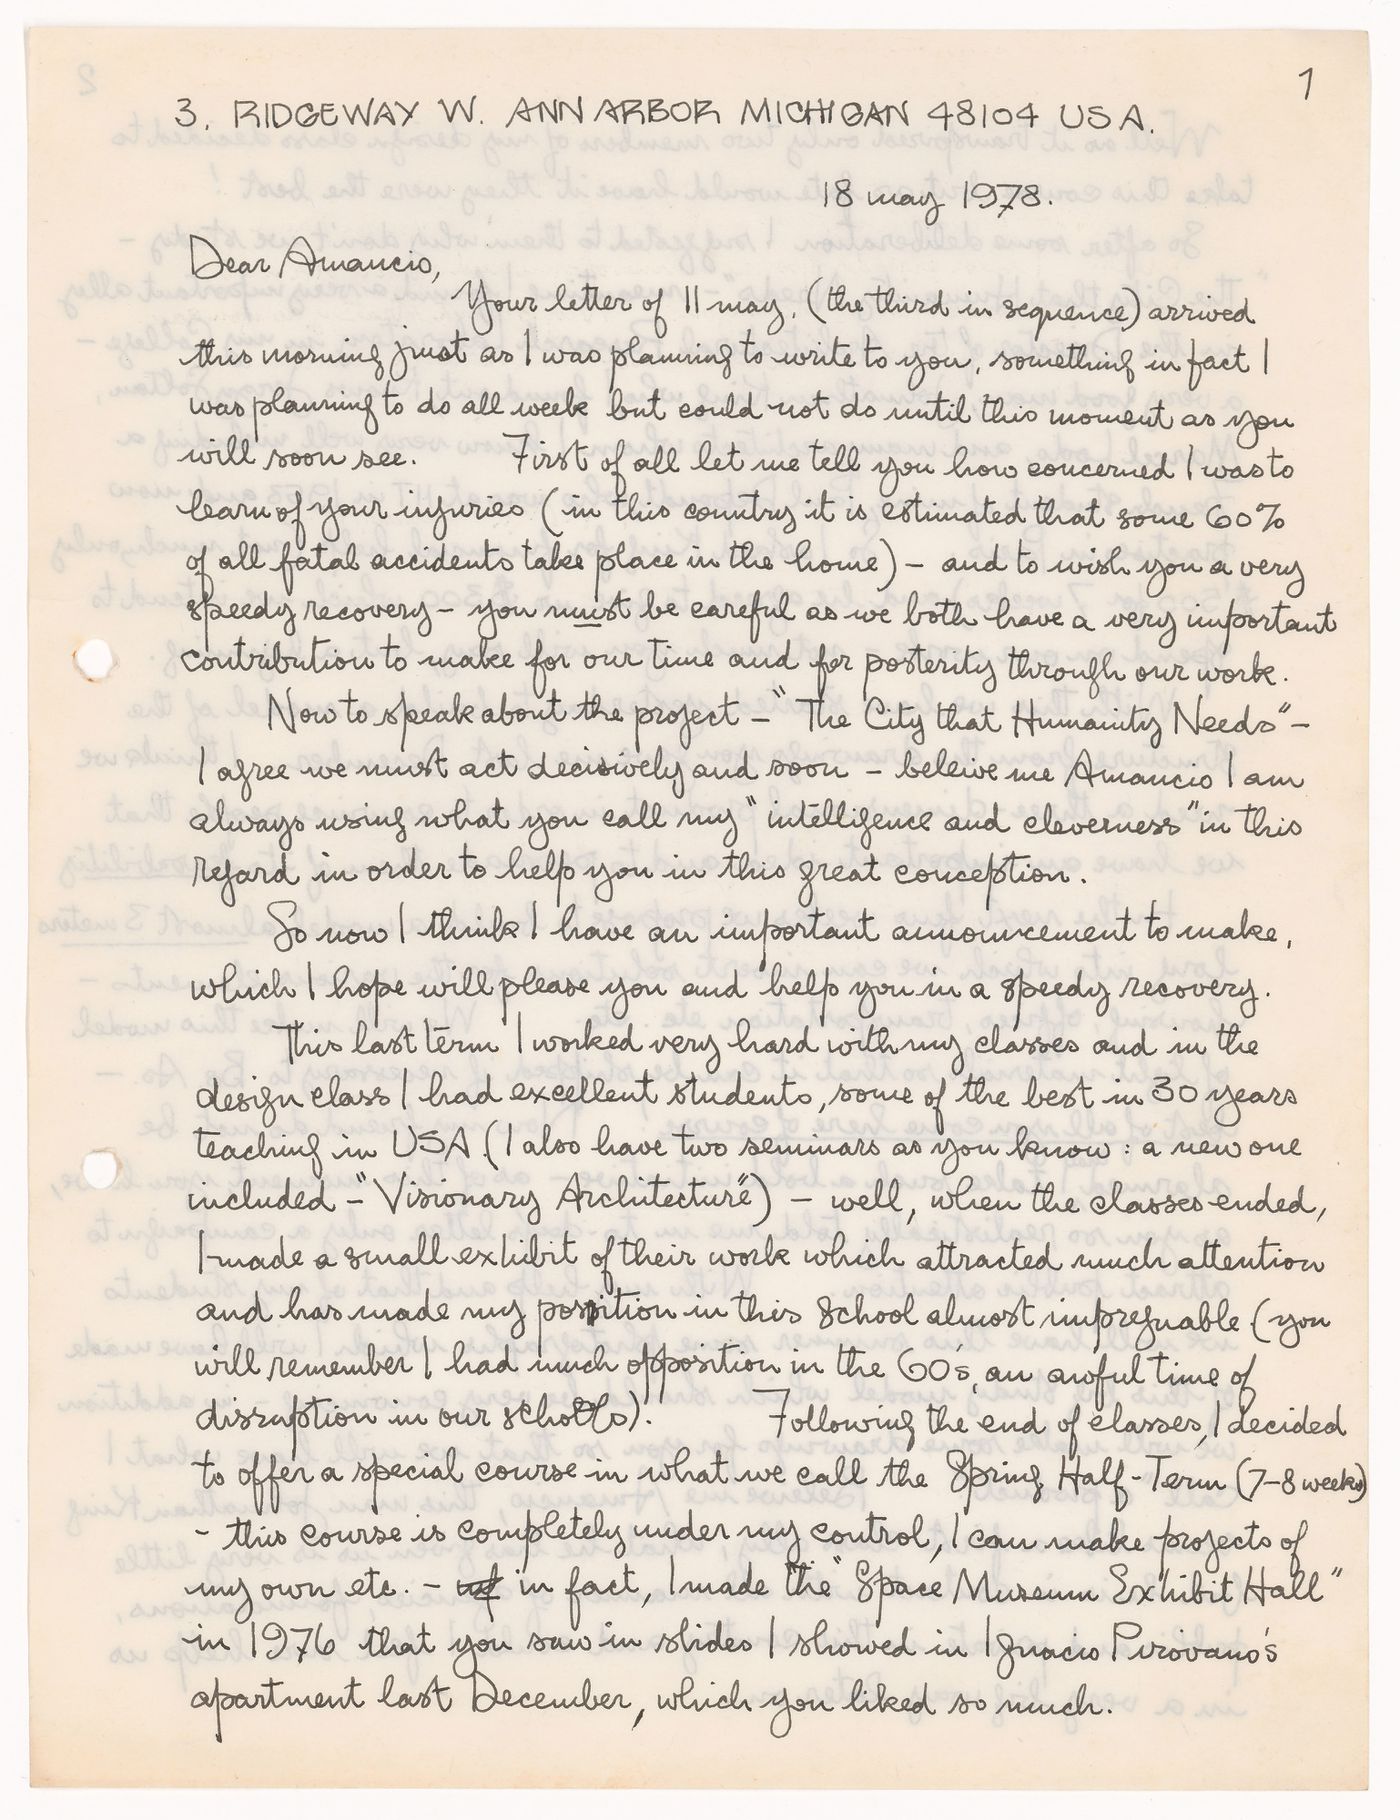 1
3. RIDGEWAY W. ANN ARBOR MICHIGAN 48104 USA.
18 may 1978.
Dear Amancio,
Your letter of 11 may, (the third in sequence) arrived
this morning just as I was planning to write to you, something in fact I
was planning to do all week but could not do until this moment as you
will soon see. First of all let me tell you how concerned I was to
learn of your injuries (in this country it is estimated that some 60%
of all fatal accidents take place in the home) – and to wish you a very
speedy recovery – you must be careful as we both have a very important
contribution to make for our time and for posterity through our work.
Now to speak about the project – "The City that Humanity Needs" –
I agree we must act decisively and soon – beleive me Amancio I am
always using what you call my "intelligence and cleverness" in this
regard in order to help you in this great conception.
So now I think I have an important announcement to make,
which I hope will please you and help you in a speedy recovery.
This last term I worked very hard with my classes and in the
design class I had excellent students, some of the best in 30 years
teaching in USA (I also have two seminars as you know : a new one
included – "Visionary Architecture") – well, when the classes ended,
I made a small exhibit of their work which attracted much attention
and has made my position in this school almost impregnable (you
will remember I had much opposition in the 60's, an awful time of
disruption in our schools). Following the end of classes, I decided
to offer a special course in what we call the Spring Half-Term (7–8 weeks)
– this course is completely under my control, I can make projects of
my own etc. – in fact, I made the "Space Museum Exhibit Hall"
in 1976 that you saw in slides I showed in Ignacio Pirovano's
apartment last December, which you liked so much.